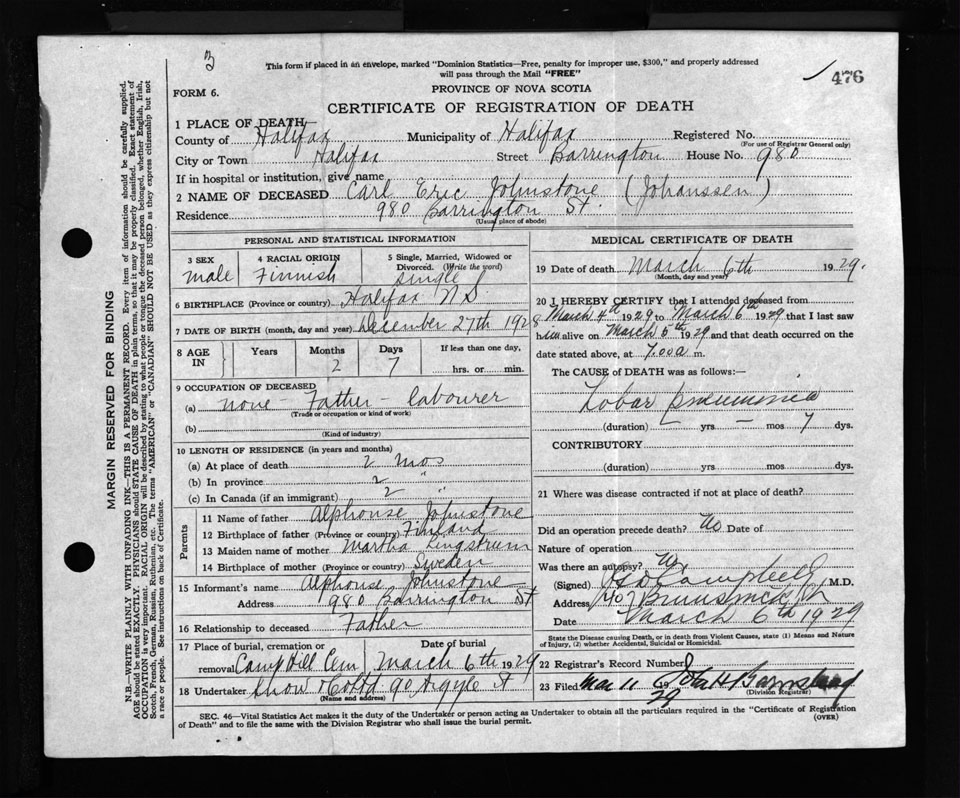 3
This form if placed in an envelope, marked "Dominion Statistics—Free, penalty for improper use, $300," and properly addressed
will pass through the Mail "FREE"
476
FORM 6.
PROVINCE OF NOVA SCOTIA
CERTIFICATE OF REGISTRATION OF DEATH
1 PLACE OF DEATH
County of Halifax Municipality of Halifax Registered No.
(For use of Registrar General only)
City or Town Halifax Street Barrington House No. 980
If in hospital or institution, give name
2 NAME OF DECEASED Carl Eric Johnstone (Johanssen)
Residence 980 Barrington St.
(Usual place of abode)
PERSONAL AND STATISTICAL INFORMATION
3 SEX male
4 RACIAL ORIGIN Finnish
5 Single, Married, Widowed or Divorced. (Write the word) single
6 BIRTHPLACE (Province or country) Halifax N S
7 DATE OF BIRTH (month, day and year) December 27th 1928
8 AGE IN Years Months 2 Days 7 If less than one day, hrs. or min.
9 OCCUPATION OF DECEASED
(a) none - Father - labourer
(Trade or occupation or kind of work)
(b)
(Kind of industry)
10 LENGTH OF RESIDENCE (in years and months)
(a) At place of death 2 mos
(b) In province 2 "
(c) In Canada (if an immigrant) 2 "
Parents
11 Name of father Alphouse Johnstone
12 Birthplace of father (Province or country) Finland
13 Maiden name of mother Martha Lingstrum
14 Birthplace of mother (Province or country) Sweden
15 Informant's name Alphouse Johnstone
Address 980 Barrington St
16 Relationship to deceased Father
17 Place of burial, cremation or removal Camp Hill Cem Date of burial March 6th 1929
18 Undertaker Snow & Co Ltd 90 Argyle St
(Name and address)
MEDICAL CERTIFICATE OF DEATH
19 Date of death March 6th 1929.
(Month, day and year)
20 I HEREBY CERTIFY that I attended deceased from
March 4th 1929 to March 6 1929 that I last saw
him alive on March 5th 1929 and that death occurred on the
date stated above, at 7.00a m.
The CAUSE of DEATH was as follows:—
Lobar pneumonia
(duration) — yrs — mos 7 dys.
CONTRIBUTORY
(duration) yrs. mos. dys.
21 Where was disease contracted if not at place of death?
Did an operation precede death? No Date of
Nature of operation
Was there an autopsy? No
(Signed) Campbell M.D.
Address 407 Brunswick St
Date March 6th 1929
State the Disease causing Death, or in death from Violent Causes, state (1) Means and Nature
of Injury, (2) whether Accidental, Suicidal or Homicidal.
22 Registrar's Record Number
23 Filed Mar 11 1929 John H Barnstead
(Division Registrar)
SEC. 46—Vital Statistics Act makes it the duty of the Undertaker or person acting as Undertaker to obtain all the particulars required in the "Certificate of Registration
of Death" and to file the same with the Division Registrar who shall issue the burial permit.
(OVER)
MARGIN RESERVED FOR BINDING
N.B.—WRITE PLAINLY WITH UNFADING INK—THIS IS A PERMANENT RECORD. Every item of information should be carefully supplied.
AGE should be stated EXACTLY. PHYSICIANS should STATE CAUSE OF DEATH in plain terms, so that it may be properly classified. Exact statement of
OCCUPATION is very important. RACIAL ORIGIN will be described by stating to what people or tongue the deceased person belonged, whether English, Irish,
Scotch, French, German, Russian, Ruthenian, etc. The terms "AMERICAN" or "CANADIAN" SHOULD NOT BE USED as they express citizenship but not
a race or people. See instructions on back of Certificate.